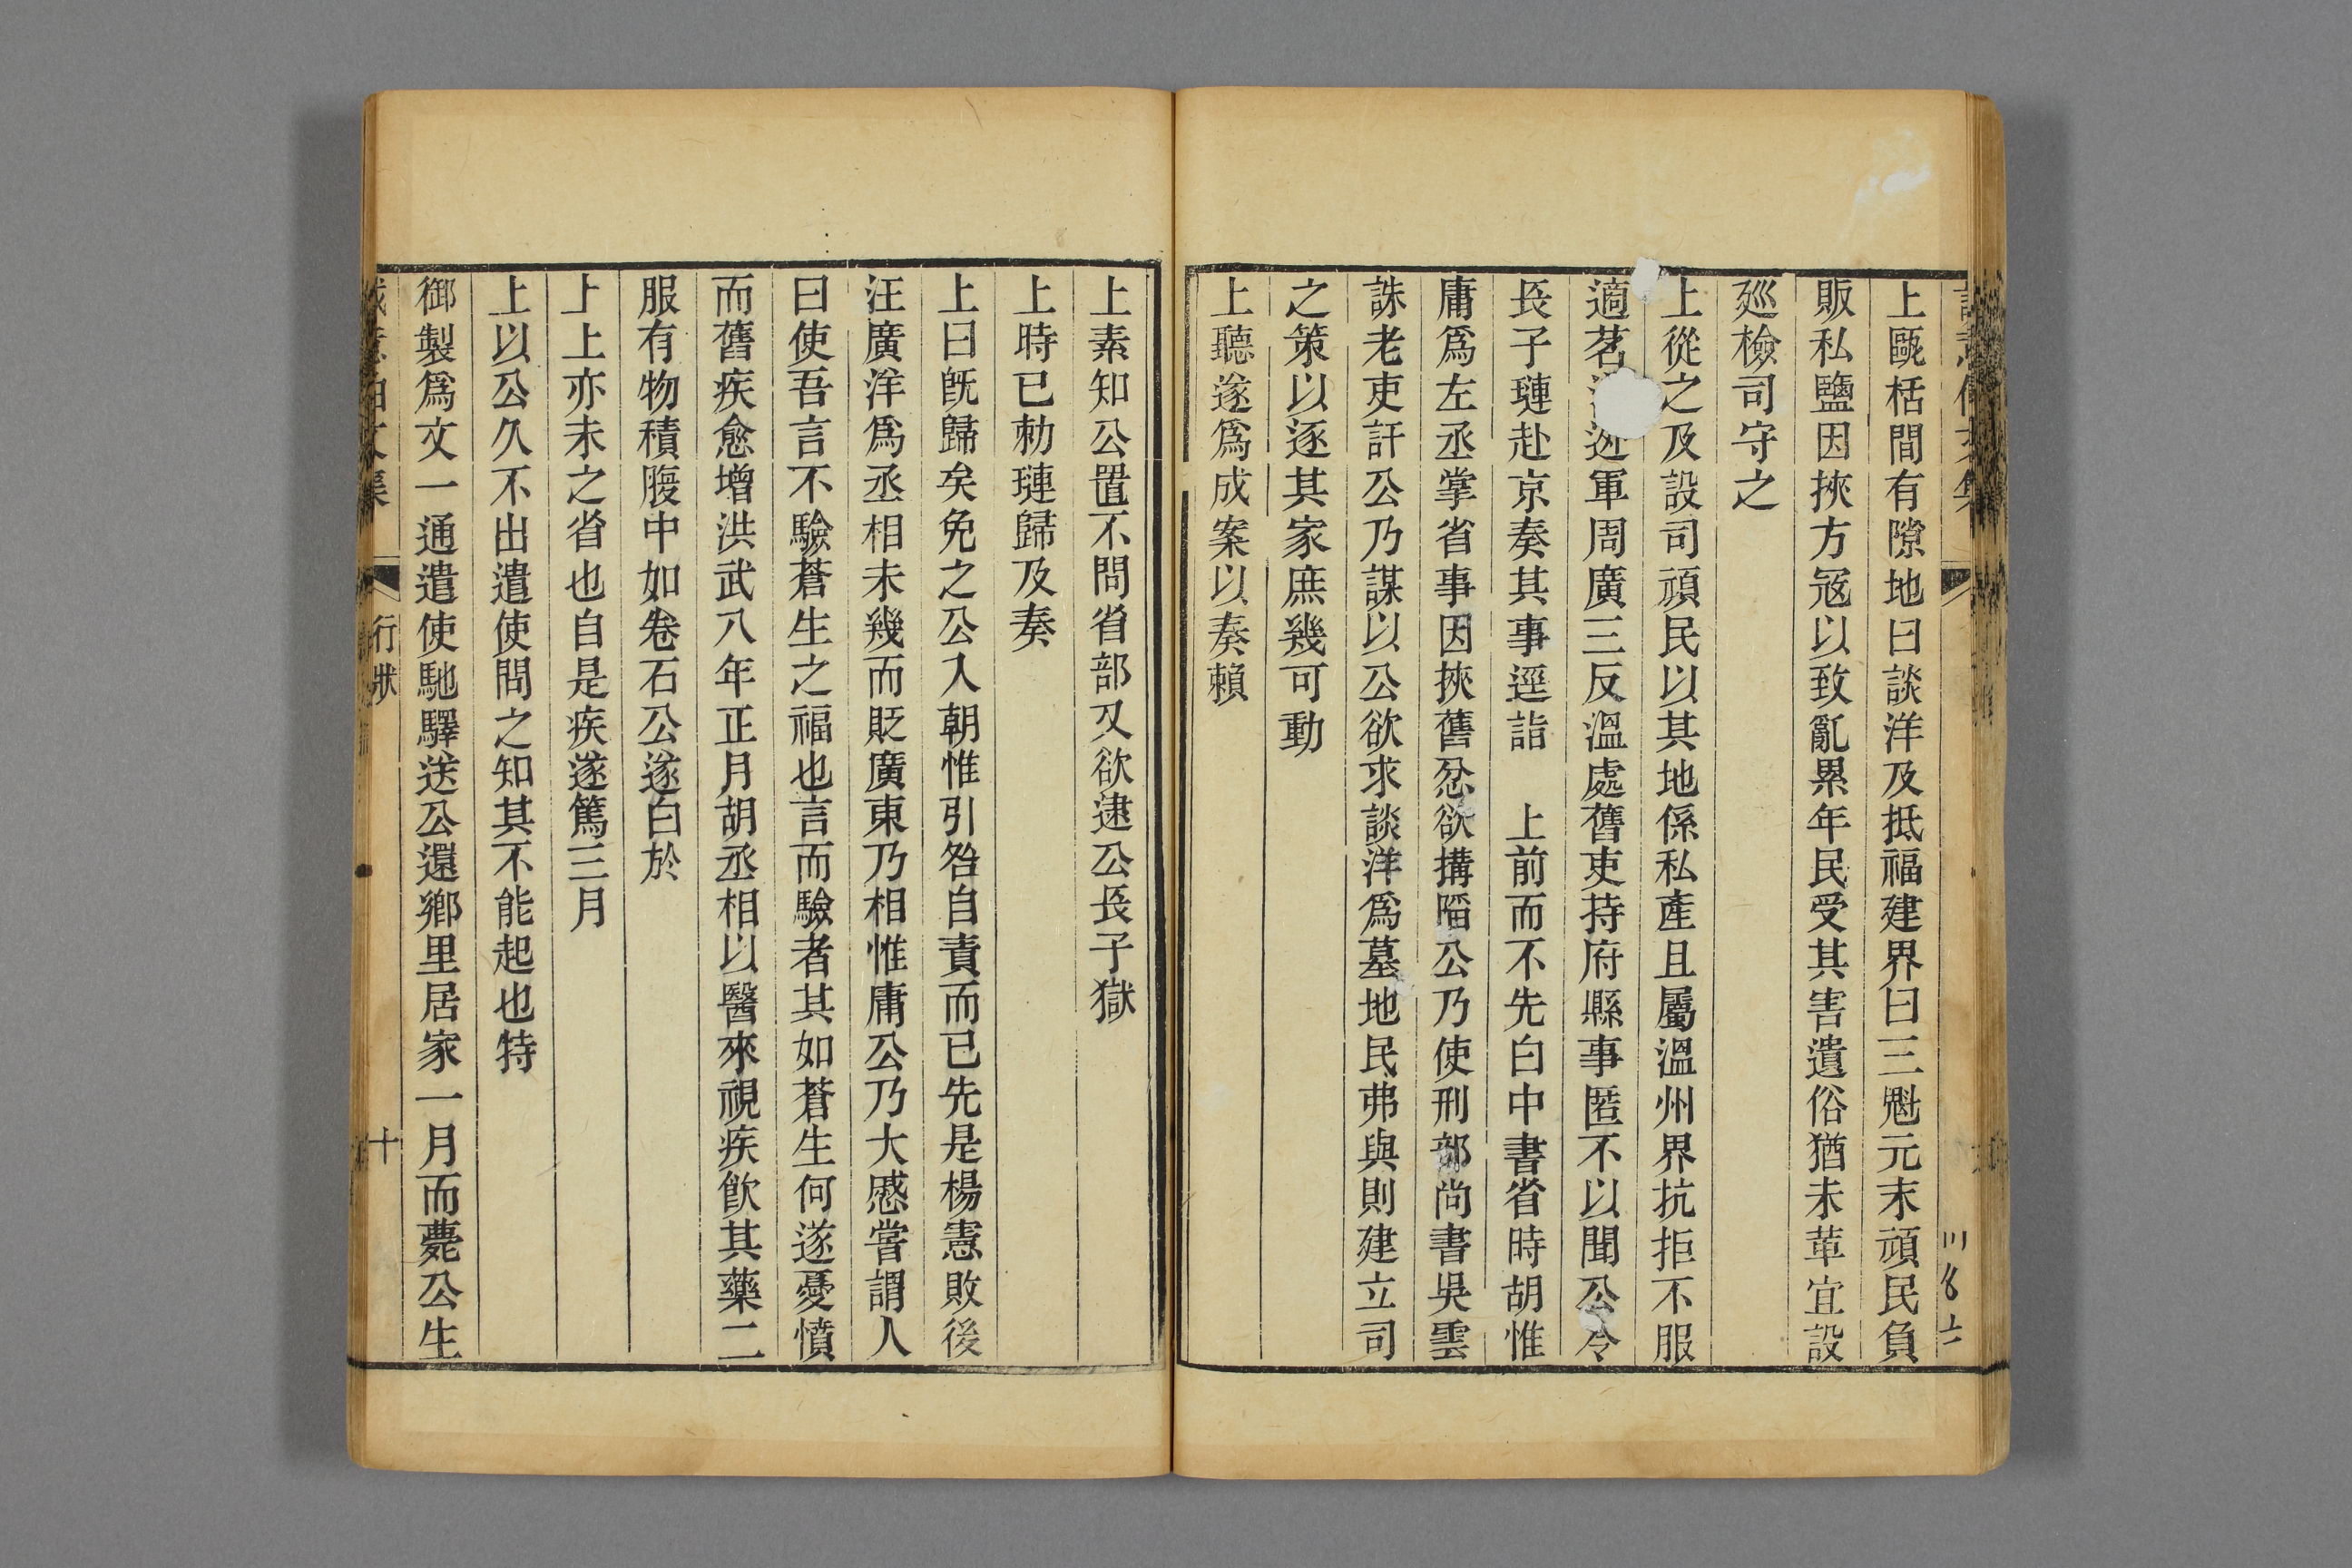 上甌栝間有隙地曰談洋及抵福建界曰三魁元末頑民負
販私鹽因挾方冦以致亂累年民受其害遺俗猶未革宜設
廵檢司守之
上從之及設司頑民以其地係私產且屬溫州界抗拒不服
適茗迯軍周廣三反溫處舊吏持府縣事匿不以聞公令
長子璉赴京奏其事逕詣　上前而不先白中書省時胡惟
庸爲左丞掌省事因挾舊忿欲搆陷公乃使刑部尚書吳雲
誅老吏訐公乃謀以公欲求談洋爲墓地民弗與則建立司
之策以逐其家庶幾可動
上聽遂爲成案以奏賴
上素知公置不問省部又欲逮公長子獄
上時已勅璉歸及奏
上曰旣歸矣免之公入朝惟引咎自責而已先是楊憲敗後
汪廣洋爲丞相未幾而貶廣東乃相惟庸公乃大慼嘗謂人
曰使吾言不驗蒼生之福也言而驗者其如蒼生何遂憂憤
而舊疾愈增洪武八年正月胡丞相以醫來視疾飲其藥二
服有物積腹中如卷石公遂白於
上上亦未之省也自是疾遂篤三月
上以公久不出遣使問之知其不能起也特
御製爲文一通遣使馳驛送公還鄉里居家一月而薨公生
行狀
十